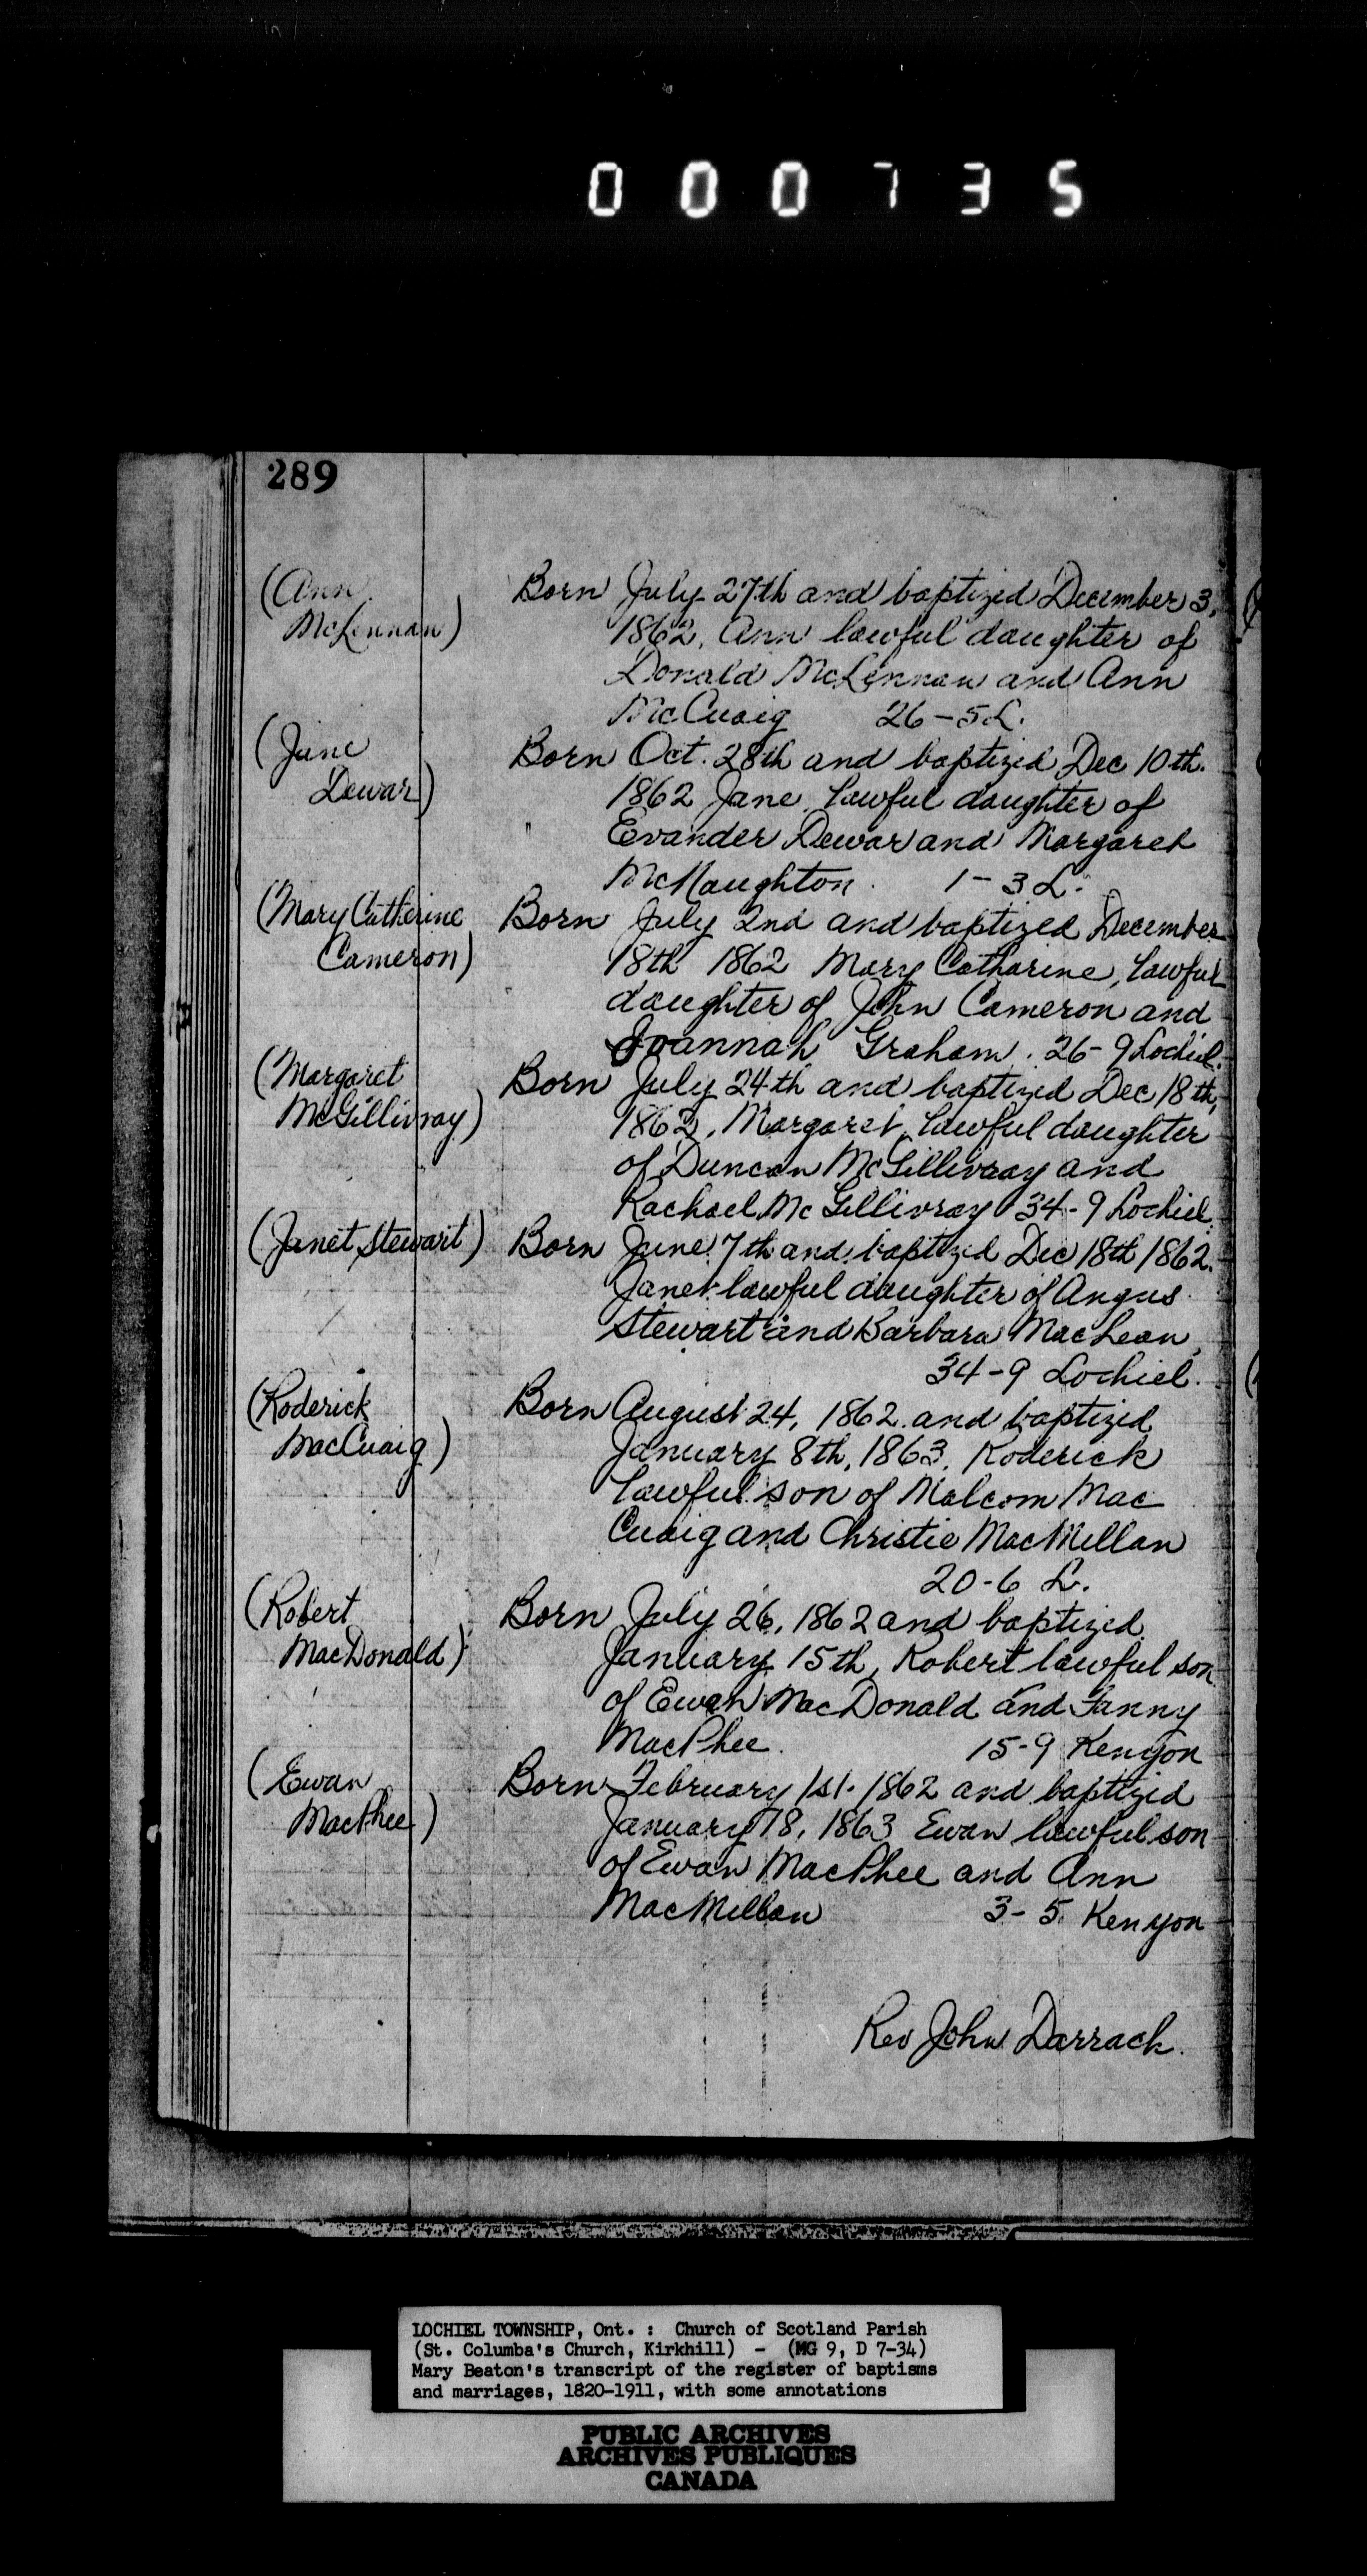 000735
289
(Ann
McLennan)
Born July 27th and baptized December 3,
1862, Ann lawful daughter of
Donald McLennan and Ann
McCuaig 26-5L.
(Jane
Dewar)
Born Oct. 28th and baptized Dec 10th.
1862 Jane lawful daughter of
Evander Dewar and Margaret
McNaughton. 1-3 L.
(Mary Catherine
Cameron)
Born July 2nd and baptized December
18th 1862 Mary Catharine, lawful
daughter of John Cameron and
Joannah Graham. 26-9 Lochiel.
(Margaret
McGillivray)
Born July 24th and baptized Dec 18th,
1862, Margaret, lawful daughter
of Duncan McGillivray and
Rachael McGillivray 34-9 Lochiel.
(Janet Stewart)
Born June 7th and baptized Dec 18th 1862.
Janet lawful daughter of Angus
Stewart and Barbara MacLean,
34-9 Lochiel.
(Roderick
MacCuaig)
Born August 24, 1862 and baptized
January 8th, 1863, Roderick
lawful son of Malcom Mac
Cuaig and Christie MacMillan
20-6 L.
(Robert
MacDonald)
Born July 26, 1862 and baptized
January 15th, Robert lawful son
of Ewan MacDonald and Fanny
MacPhee. 15-9 Kenyon
(Ewan
MacPhee)
Born February 1st. 1862 and baptized
January 18, 1863 Ewan lawful son
of Ewan MacPhee and Ann
MacMillan 3-5 Kenyon
Rev John Darrach.
LOCHIEL TOWNSHIP, Ont. : Church of Scotland Parish
(St. Columba's Church, Kirkhill) - (MG 9, D 7-34)
Mary Beaton's transcript of the register of baptisms
and marriages, 1820-1911, with some annotations
PUBLIC ARCHIVES
ARCHIVES PUBLIQUES
CANADA